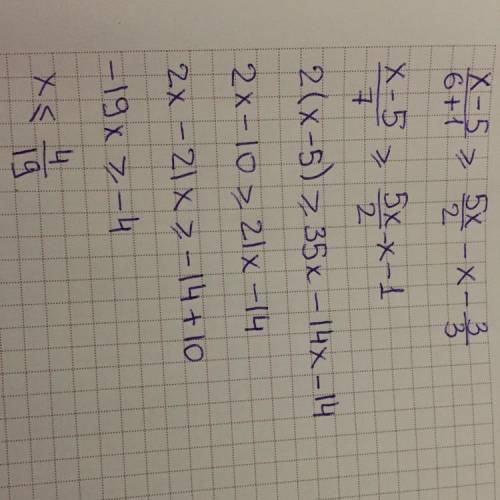 x-5/6+1 ≥ 5x/2 - x - 3/3
x-5/7 ≥ 5x/2 - x - 1
2(x-5) ≥ 35x - 14x - 14
2x - 10 ≥ 21x - 14
2x - 21x ≥ -14 + 10
-19x ≥ -4
x ≤ 4/19